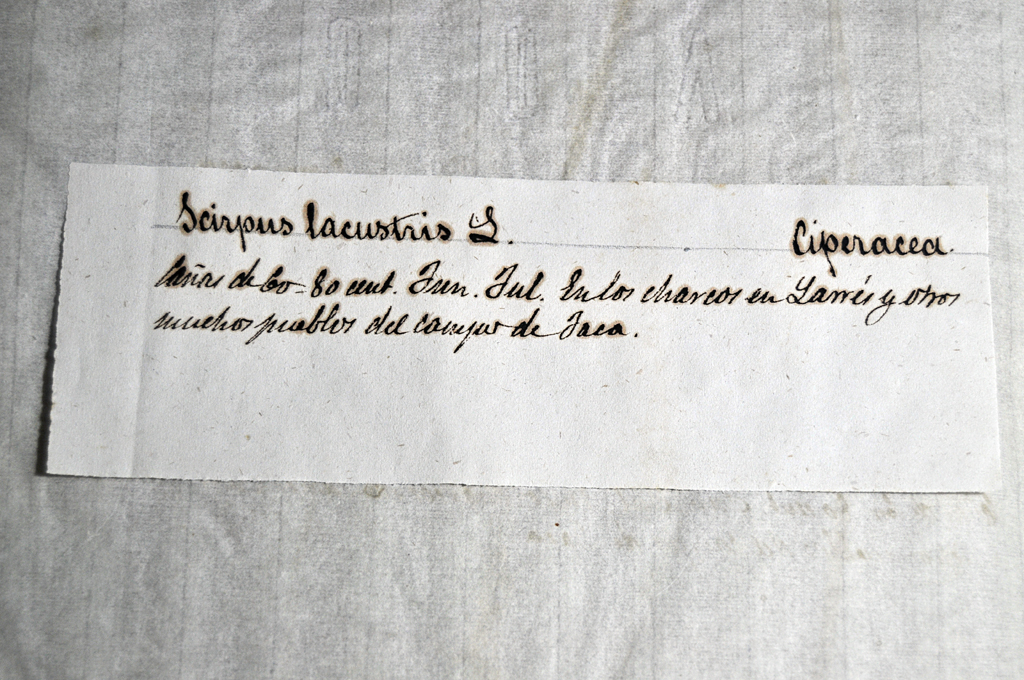 Scirpus lacustris L. Ciperacea.
Cañas de 60-80 cent. Jun. Jul. En los charcos en Larrés y otros
muchos pueblos del campo de Jaca.